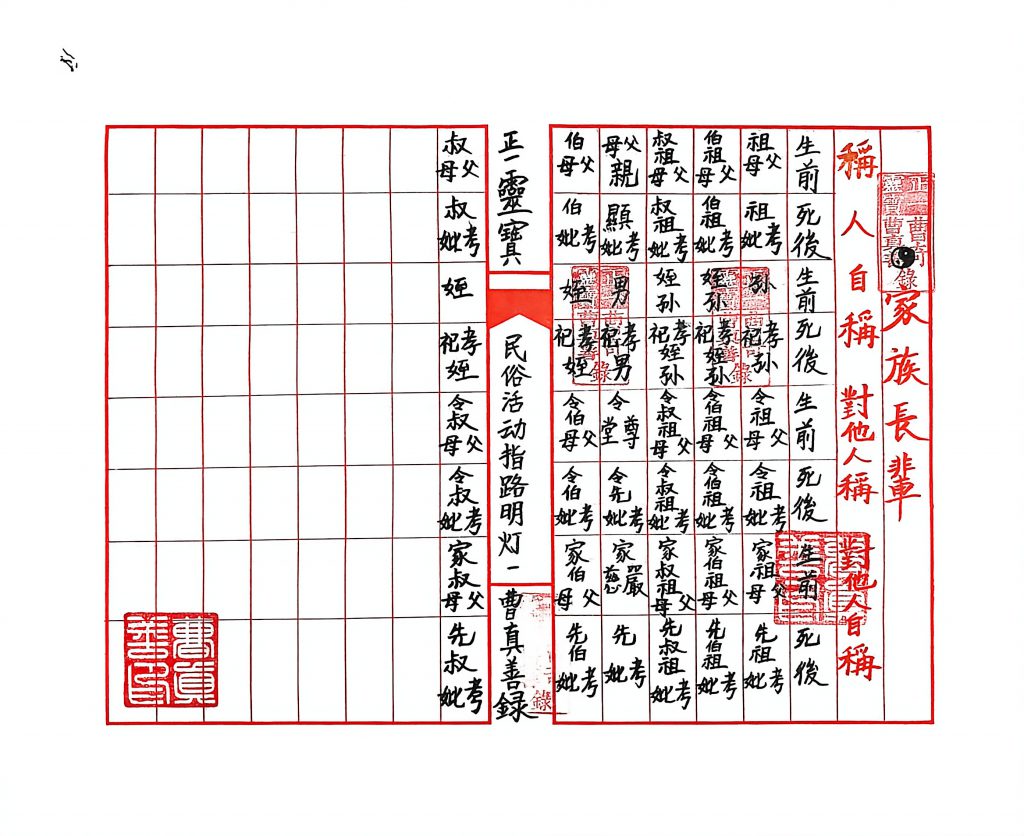 家族長輩
稱人 自稱 對他人稱 對他人自稱
生前 死後 生前 死後 生前 死後 生前 死後
祖父母 祖考妣 孫 孝祀孫 令祖父母 令祖考妣 家祖父母 先祖考妣
伯祖父母 伯祖考妣 姪孫 孝祀姪孫 令伯祖父母 令伯祖考妣 家伯祖父母 先伯祖考妣
叔祖父母 叔祖考妣 姪孫 孝祀姪孫 令叔祖父母 令叔祖考妣 家叔祖父母 先叔祖考妣
父母親 顯考妣 男 孝祀男 令尊堂 令先考妣 家嚴慈 先考妣
伯父母 伯考妣 姪 孝祀姪 令伯父母 令伯考妣 家伯父母 先伯考妣
正一靈寶 民俗活动指路明灯一 曹真善録
叔父母 叔考妣 姪 孝祀姪 令叔父母 令叔考妣 家叔父母 先叔考妣
曹真善印